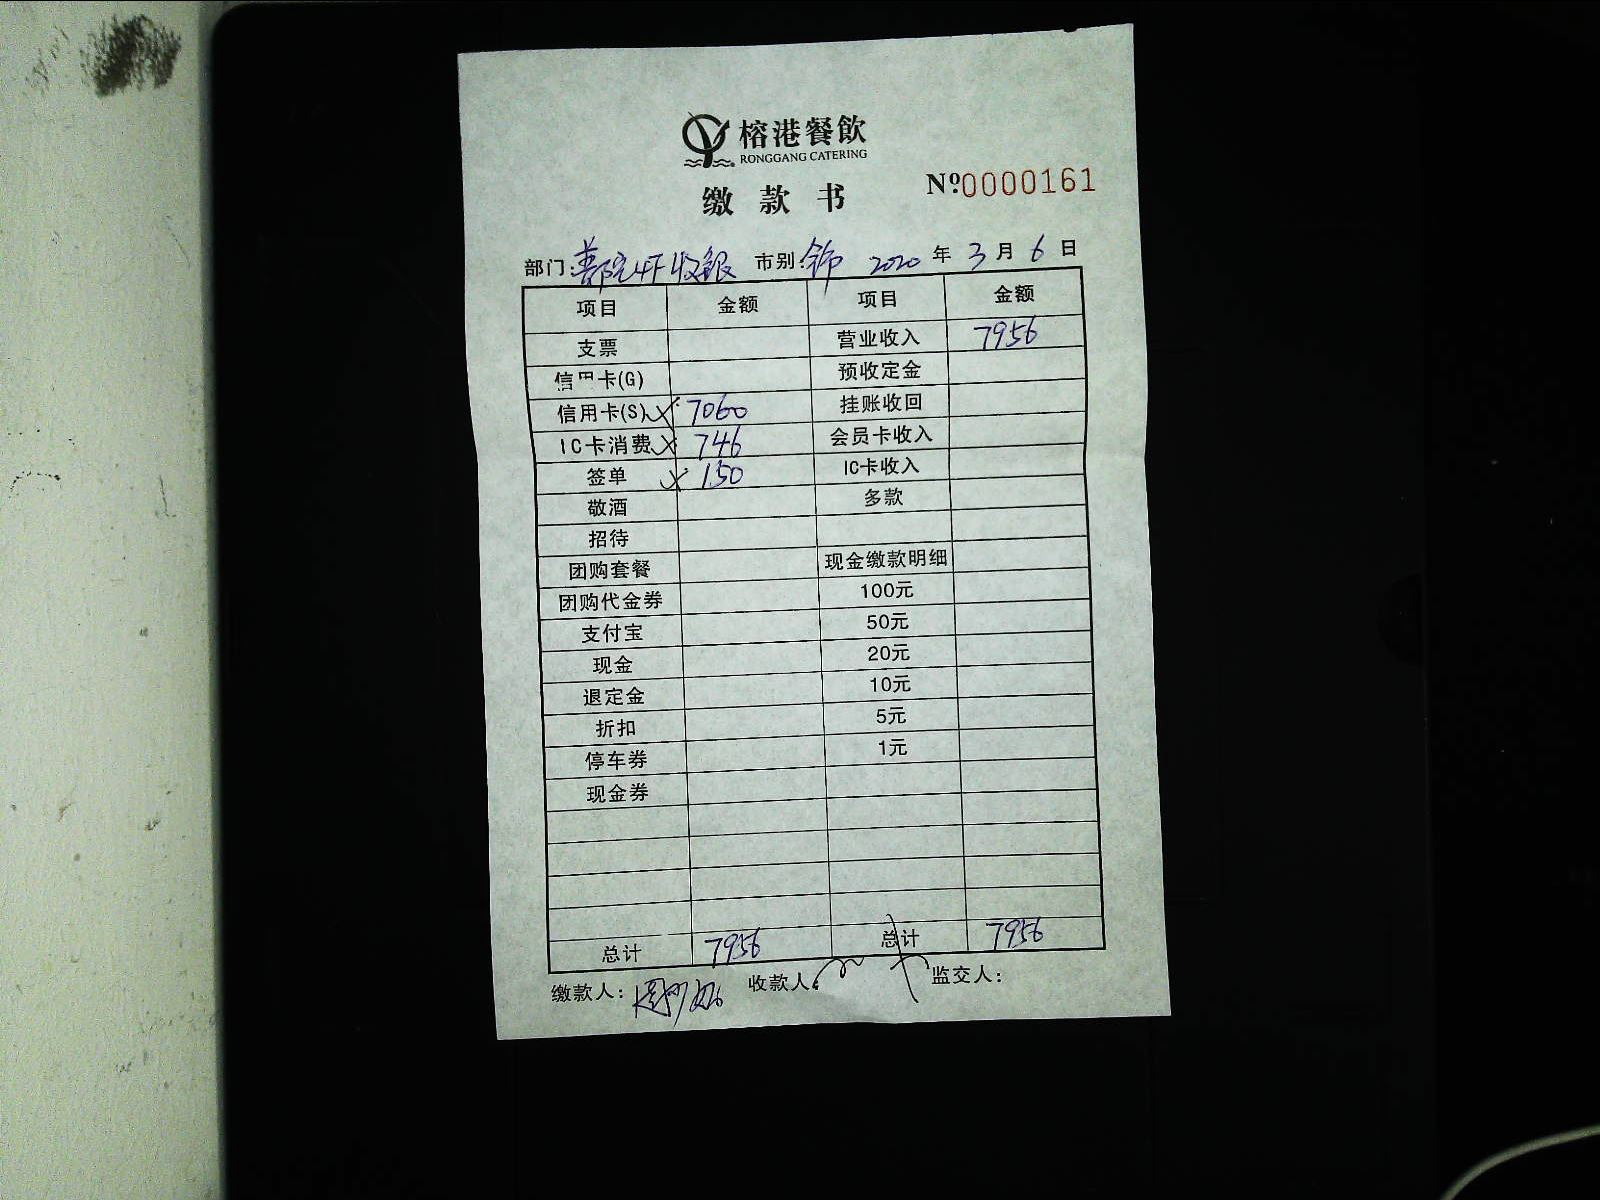 榕港餐飲
RONGGANG CATERING
缴款书
№0000161
部门: 4F收銀 市别: 2020年3月6日
项目 金额 项目 金额
支票 营业收入 7956
信用卡(G) 预收定金
信用卡(S) 7060 挂账收回
IC卡消费 746 会员卡收入
签单 150 IC卡收入
敬酒 多款
招待
团购套餐 现金缴款明细
团购代金券 100元
支付宝 50元
现金 20元
退定金 10元
折扣 5元
停车券 1元
现金券
总计 7956 总计 7956
缴款人: 收款人: 监交人: